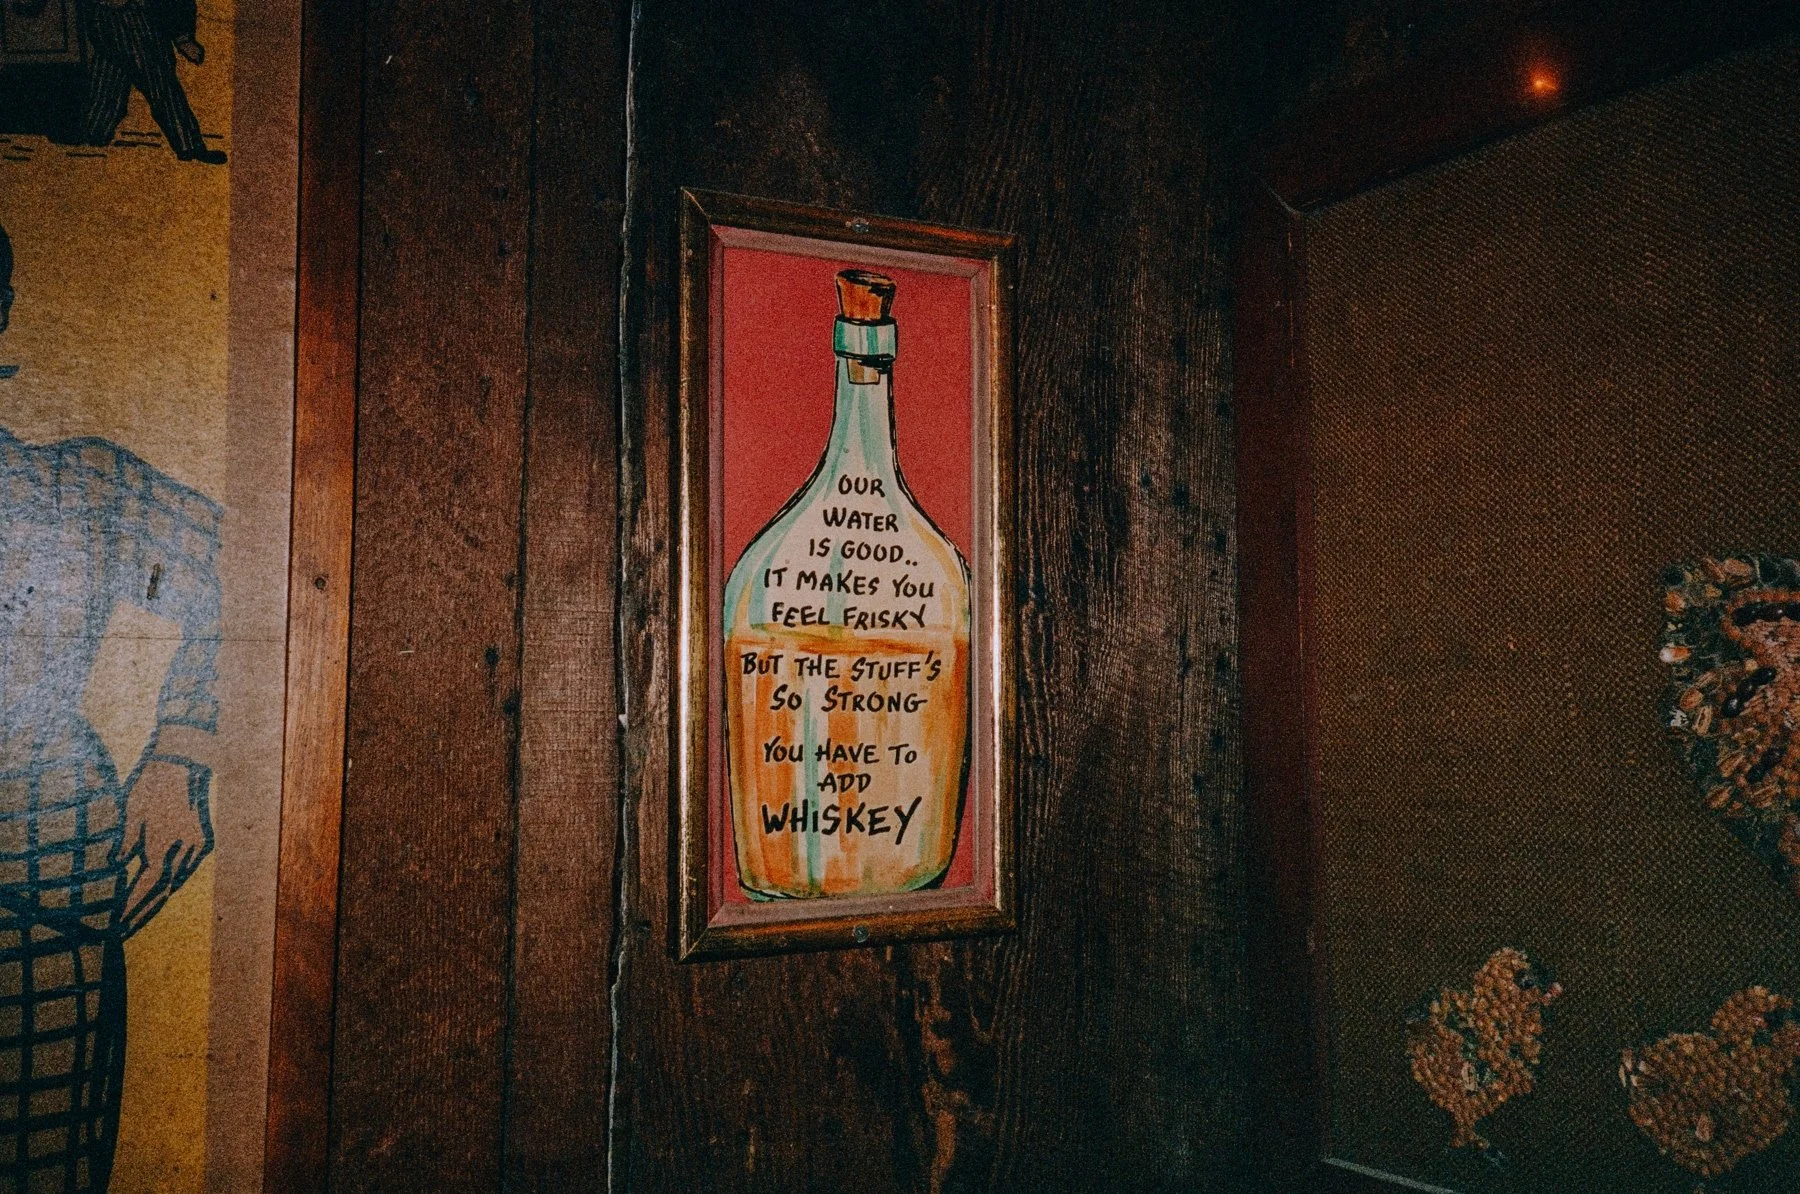 OUR
WATER
IS GOOD..
IT MAKES YOU
FEEL FRISKY
BUT THE STUFF'S
SO STRONG
YOU HAVE TO
ADD
WHISKEY